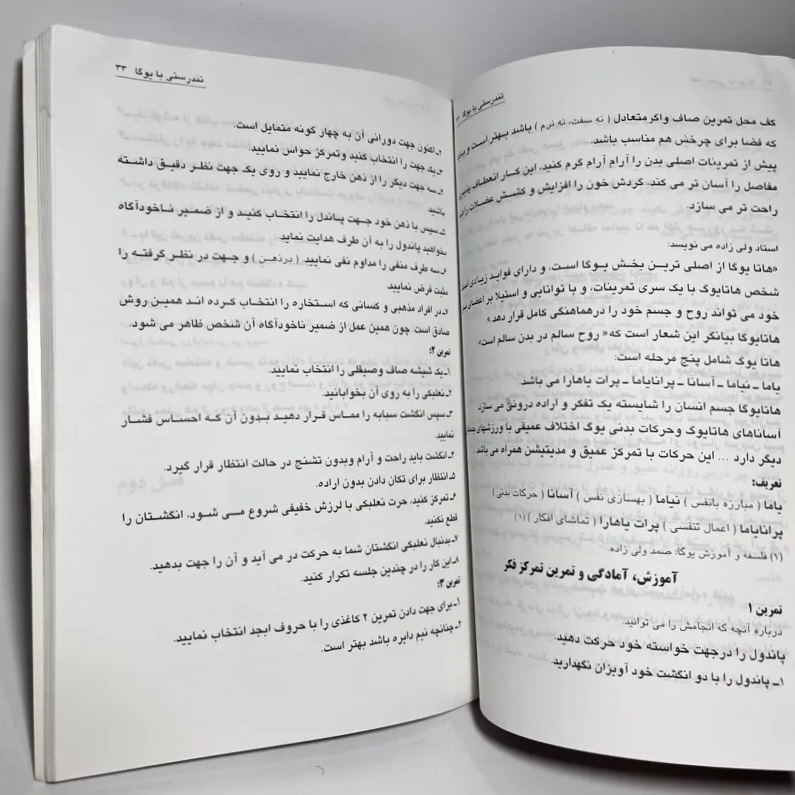 تندرستی با یوگا
کف محل تمرین صاف واگر متعادل ( نه سفت، نه نرم ) باشد بهتر است و
که فضا برای چرخش هم مناسب باشد.
پیش از تمرینات اصلی بدن را آرام آرام گرم کنید، این کار انعطاف
مفاصل را آسان تر می کند، گردش خون را افزایش و کشش عضلات را
راحت تر می سازد.
استاد ولی زاده می نویسد:
«هاتا یوگا از اصلی ترین بخش یوگا است، و دارای فواید زیادی است
شخص هاتایوگ با یک سری تمرینات، و با توانایی و استیلا بر اعضای
خود می تواند روح و جسم خود را درهماهنگی کامل قرار دهد»
هاتایوگا بیانگر این شعار است که« روح سالم در بدن سالم است»
هاتا یوگ شامل پنج مرحله است:
یاما ـ نیاما ـ آسانا ـ پرانایاما ـ پرات یاهارا می باشد.
هاتایوگا جسم انسان را شایسته یک تفکر و اراده درونی می سازد
آساناهای هاتایوگ وحرکات بدنی یوگ اختلاف عمیقی با ورزشهای
دیگر دارد ... این حرکات با تمرکز عمیق و مدیتیشن همراه می باشد.
تعریف:
یاما ( مبارزه بانفس ) نیاما ( بهسازی نفس ) آسانا ( حرکات بدنی )
پرانایاما ( اعمال تنفسی ) پرات یاهارا ( تماشای افکار ) (۱)
(۱) فلسفه و آموزش یوگا: صمد ولی زاده.
آموزش، آمادگی و تمرین تمرکز فکر
تمرین ۱
درباره آنچه که انجامش را می توانید.
پاندول را درجهت خواسته خود حرکت دهید.
۱ـ پاندول را با دو انگشت خود آویزان نگهدارید.
تندرستی با یوگا ۳۳
۲ـ اکنون جهت دورانی آن به چهار گونه متمایل است.
۳ـ یک جهت را انتخاب کنید وتمرکز حواس نمایید.
۴ـ سه جهت دیگر را از ذهن خارج نمایید و روی یک جهت نظر دقیق داشته
باشید.
۵ـ سپس با ذهن خود جهت پاندل را انتخاب کنید و از ضمیر ناخودآگاه
بخواهید پاندول را به آن طرف هدایت نماید.
۶ـ سه طرف منفی را مداوم نفی نمایید. ( درذهن ) و جهت در نظر گرفته را
مثبت فرض نمایید.
۷ـ در افراد مذهبی و کسانی که استخاره را انتخاب کرده اند همین روش
صادق است. چون همین عمل از ضمیر ناخودآگاه آن شخص ظاهر می شود.
تمرین ۲:
۱ـ یک شیشه صاف وصیقلی را انتخاب نمایید.
۲ـ نعلبکی را به روی آن بخوابانید.
۳ـ سپس انگشت سبابه را مماس قرار دهید بدون آن که احساس فشار
نمایید
۴ـ انگشت باید راحت و آرام وبدون تشنج در حالت انتظار قرار گیرد.
۵ـ انتظار برای تکان دادن بدون اراده.
۶ـ تمرکز کنید، حرت نعلبکی با لرزش خفیفی شروع می شود، انگشتان را
قطع نکنید.
۷ـ بدنبال نعلبکی انگشتان شما به حرکت در می آید و آن را جهت بدهید.
۸ـ این کار را در چندین جلسه تکرار کنید.
تمرین ۳:
۱ـ برای جهت دادن تمرین ۲ کاغذی را با حروف ابجد انتخاب نمایید.
۲ـ چنانچه نیم دایره باشد بهتر است.